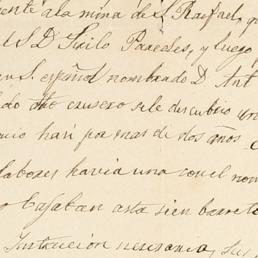 ente a la mina de S. Rafael, q
el S.D. Sixto Paredes, y luego
un S. español nombrado D. Ant
do dho crusero se le descubrio un
cio hari por mas de dos años
labores havia una con el nom
o bajaban asta sien barrete
Instrucion nesesaria, su